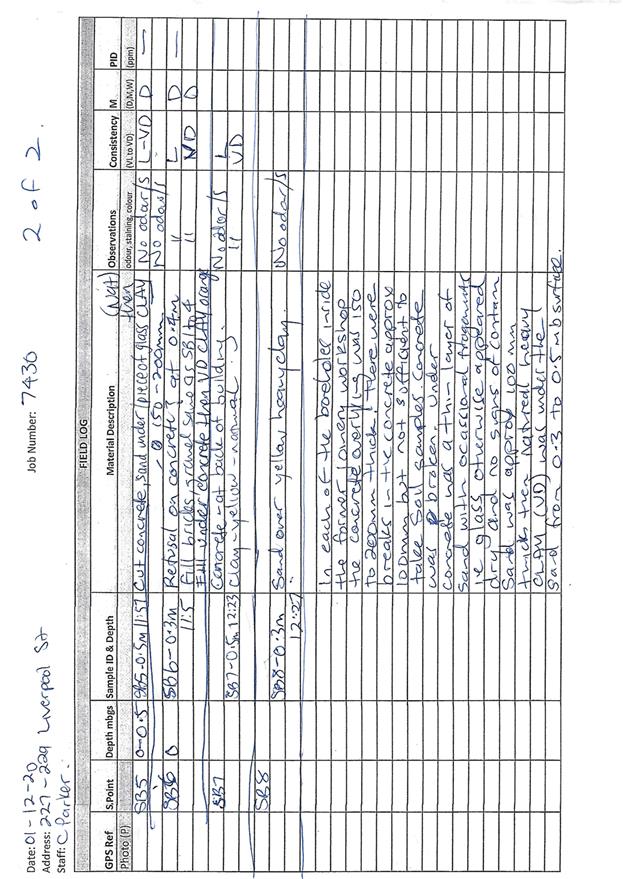 Date: 01-12-20 Job Number: 7436 2 of 2.
Address: 227-229 Liverpool St
Staff: C Parker.
FIELD LOG
GPS Ref S.Point Depth mbgs Sample ID & Depth Material Description Observations Consistency M PID
Photo (P) odour, staining, colour (VL to VD) (D,M,W) (ppm)
(Nat)
then
SB5 0-0.5 SB5-0.5m 11:57 Cut concrete, sand under piece of glass CLAY No odor/s L-VD D —
150-200mm No odor/s
SB6 0 SB6-0.3m Refusal on concrete? at 0.4m " L D —
11:5 Fill bricks, gravel same as SB1 to 4 " VD D
Fill under concrete than VD CLAY orange
SB7 Concrete - at back of building. No odor/s L
SB7-0.5m 12:23 Clay - yellow - normal " VD
SB8
SB8-0.3m Sand over yellow heavy clay. No odor/s
12:27
In each of the boreholes inside
the former joinery workshop
the concrete overlying was 150
to 200mm thick. There were
breaks in the concrete approx
100mm but not sufficient to
take soil samples. Concrete
was broken. Under
concrete was a thin layer of
sand with ocassional fragments
ie glass otherwise appeared
dry and no signs of contam
Sand was approx 100 mm
thick then natural heavy
CLAY (VD) was under the
sand from 0.3 to 0.5 mb surface.